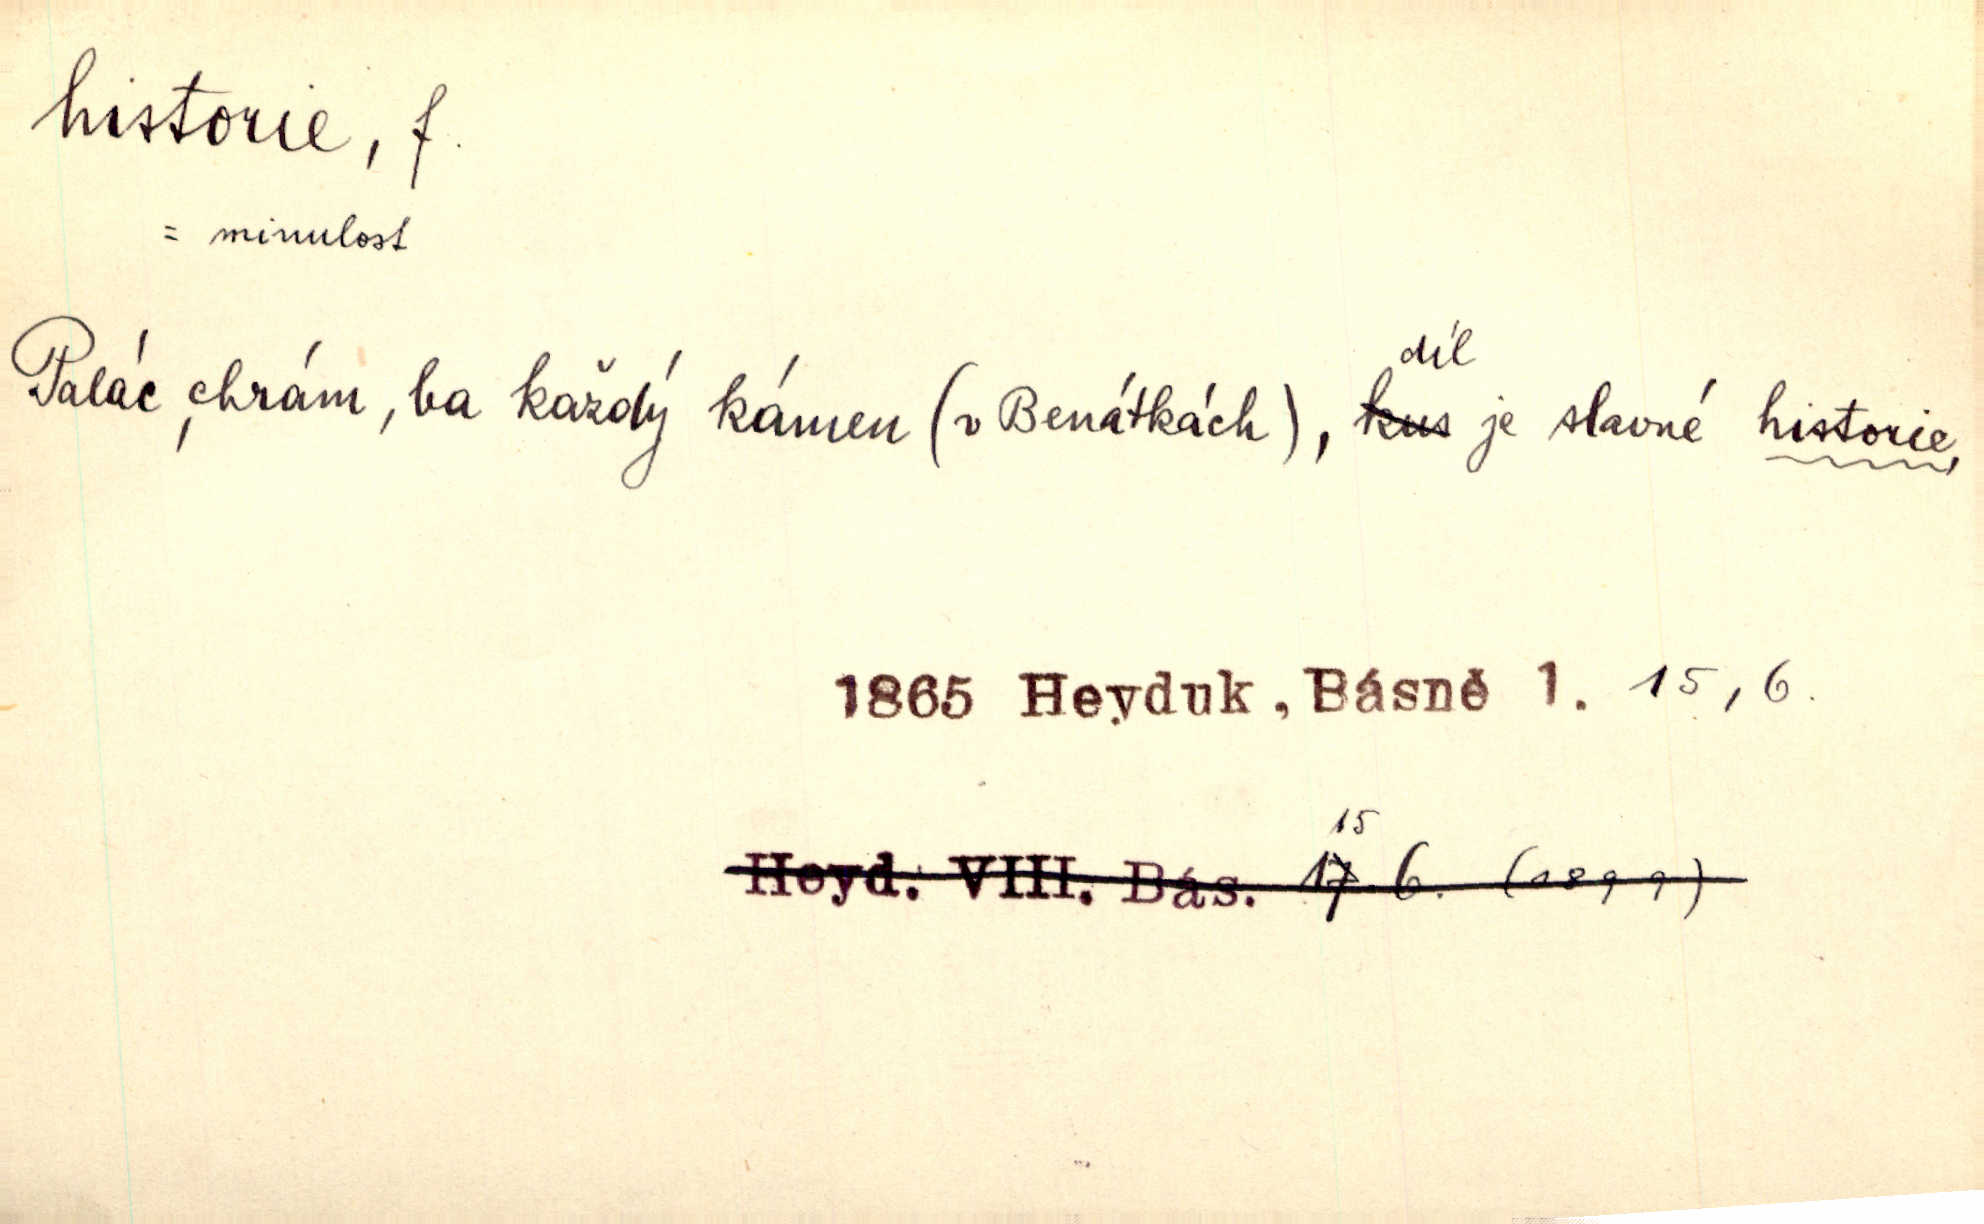 historie, f.
= minulost
díl
Palác, chrám, ba každý kámen (v Benátkách), kus je slavné historie,
1865 Heyduk, Básně 1. 15, 6.
15
Heyd. VIII. Bás. 17. 6. (1899)